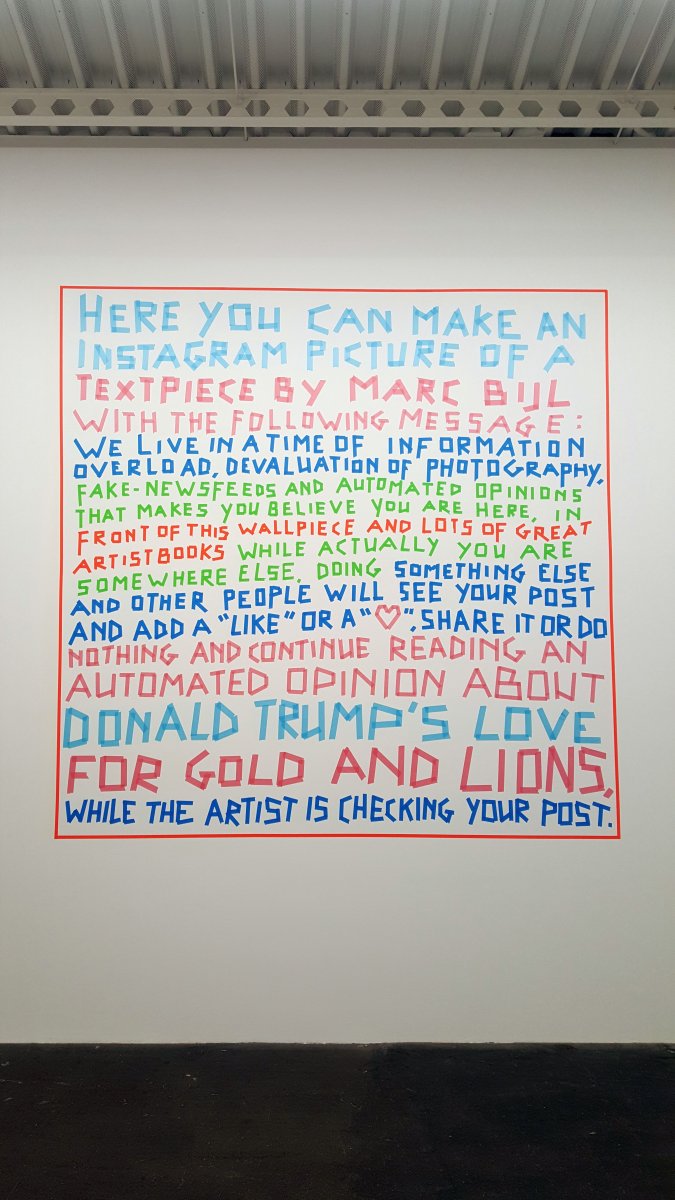 HERE YOU CAN MAKE AN
INSTAGRAM PICTURE OF A
TEXTPIECE BY MARC BIJL
WITH THE FOLLOWING MESSAGE:
WE LIVE IN A TIME OF INFORMATION
OVERLOAD, DEVALUATION OF PHOTOGRAPHY,
FAKE-NEWSFEEDS AND AUTOMATED OPINIONS
THAT MAKES YOU BELIEVE YOU ARE HERE, IN
FRONT OF THIS WALLPIECE AND LOTS OF GREAT
ARTISTBOOKS WHILE ACTUALLY YOU ARE
SOMEWHERE ELSE, DOING SOMETHING ELSE
AND OTHER PEOPLE WILL SEE YOUR POST
AND ADD A "LIKE" OR A "♡", SHARE IT OR DO
NOTHING AND CONTINUE READING AN
AUTOMATED OPINION ABOUT
DONALD TRUMP'S LOVE
FOR GOLD AND LIONS,
WHILE THE ARTIST IS CHECKING YOUR POST.